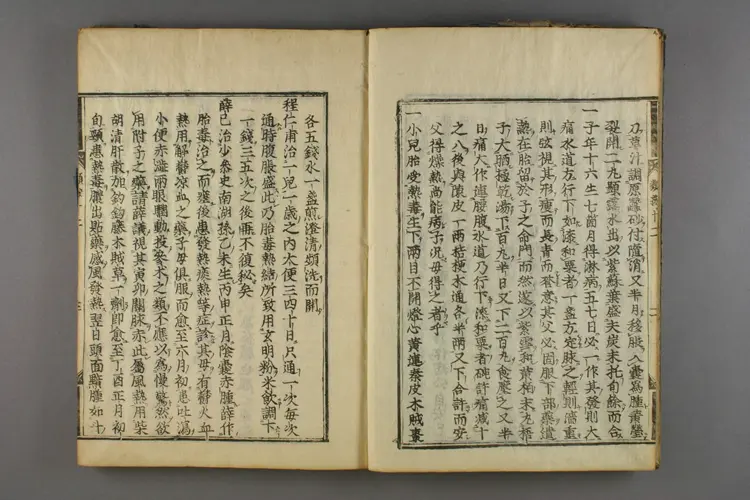 刀草汁調原蠶砂付隂消又半月移膿入囊為腫黄瑩
裂開二丸顆露水出以紫蘇葉盛夫炭末托旬餘而合
一子年十六生七箇月得淋病五七日必一作其發則大
痛水道方行下如漆和粟者一盞方定脉之輕則澁重
則弦視其形瘦而長青而蒼意其父必固服下部藥遺
熱在胎留於子之命門而然遂以紫雪和黄栢末丸梧
子大晒極乾湯下百丸半日又下二百丸食壓之又半
日痛大作連腰腹水道乃行下漆和粟者碗許痛减十
之八後與陳皮一兩桔梗木通各半兩又下合許而安
父得燥熱尚能病子况母得之者乎
一小兒胎受熱毒生下兩目不開燈心黄連秦皮木賊棗
各五錢水一盞煎澄清頻洗而開
程仁甫治一兒一歲之内大便三四十日只通一次每次
通時腹脹盛此乃胎毒熱結所致用玄明粉米飲調下
一錢三五次之後再不復秘矣
薛己治少參史南湖孫乙未生丙申正月隂囊赤腫薛作
胎毒治之而瘥後患發熱痰熱等症診其母有鬱火血
熱用解鬱凉血之藥子母俱服而愈至六月初患吐瀉
小便赤澁兩眼瞤動投參术之類不應以為慢驚然欲
用附子之藥請薛議視其寅卯關脉赤此屬風熱用柴
胡清肝散加鈎鈎藤木賊草一劑即愈至丁酉正月初
旬頸患熱毒膿出貼藥感風發熱翌日頭面黯腫如斗